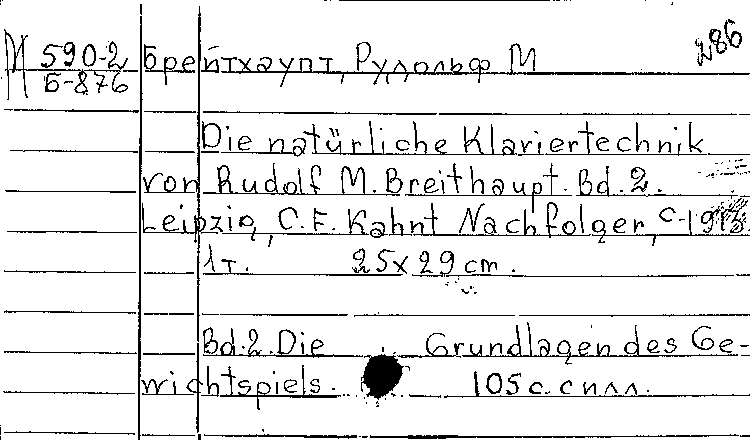 М 590-2 Брейтхаупт, Рудольф М 286
Б-876
Die natürliche Klaviertechnik
von Rudolf M. Breithaupt. Bd. 2.
Leipzig, C. F. Kahnt Nachfolger, c-1913.
1 т. 25x29 cm.
Bd. 2. Die Grundlagen des Ge-
wichtspiels. 105 с. с илл.